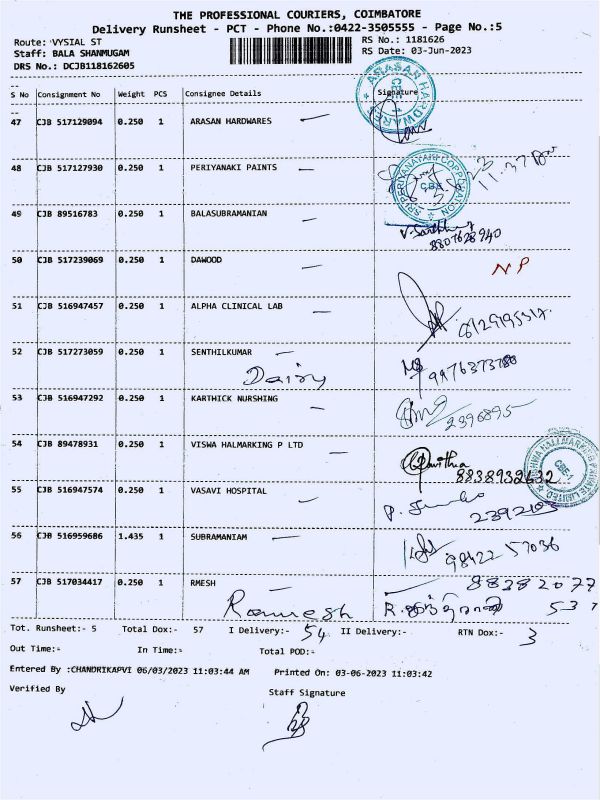 THE PROFESSIONAL COURIERS, COIMBATORE
Delivery Runsheet - PCT - Phone No.:0422-3505555 - Page No.:5
Route: VYSIAL ST
Staff: BALA SHANMUGAM
DRS No.: DCJB118162605
RS No.: 1181626
RS Date: 03-Jun-2023
S No Consignment No Weight PCS Consignee Details Signature
47 CJB 517129094 0.250 1 ARASAN HARDWARES
ARASAN HARDWARES
48 CJB 517127930 0.250 1 PERIYANAKI PAINTS
SRI PERIYANAYAKI CORPORATION
CBE
49 CJB 89516783 0.250 1 BALASUBRAMANIAN
8807628940
50 CJB 517239069 0.250 1 DAWOOD NP
51 CJB 516947457 0.250 1 ALPHA CLINICAL LAB
52 CJB 517273059 0.250 1 SENTHILKUMAR
Dairy
53 CJB 516947292 0.250 1 KARTHICK NURSHING 2396895
54 CJB 89478931 0.250 1 VISWA HALMARKING P LTD
8838932632
CBE-1
55 CJB 516947574 0.250 1 VASAVI HOSPITAL
2392103
56 CJB 516959686 1.435 1 SUBRAMANIAM 98422 57036
57 CJB 517034417 0.250 1 RMESH 88382077
Ramesh 537
Tot. Runsheet:- 5 Total Dox:- 57 I Delivery:- 54 II Delivery:- RTN Dox:- 3
Out Time:- In Time:- Total POD:-
Entered By :CHANDRIKAPVI 06/03/2023 11:03:44 AM Printed On: 03-06-2023 11:03:42
Verified By Staff Signature